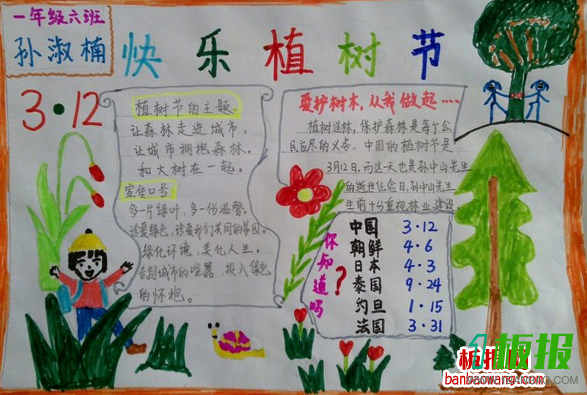 一年级六班
孙淑楠
快乐植树节
3·12
植树节的主题
让森林走进城市,
让城市拥抱森林,
和大树在一起。
宣传口号
多一片绿叶,多一份温馨。
绿化环境,美化人生。
告别城市的喧嚣,投入绿色
的怀抱。
爱护树木,从我做起····
植树造林,保护森林是每个公
民应尽的义务。中国的植树节是
3月12日,而这一天也是孙中山先生
的逝世纪念日,孙中山先生
生前十分重视林业建设
你知道吗?
中国 3·12
朝鲜 4·6
日本 4·3
泰国 9·24
约旦 1·15
法国 3·31
板报
板报网
banbaowang.com